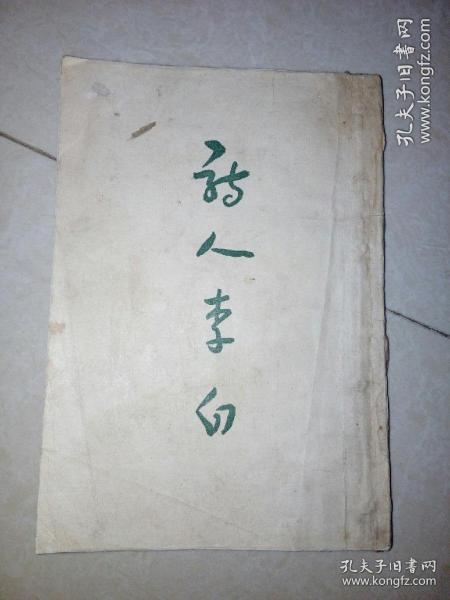 诗人李白
孔夫子旧书网
www.kongfz.com
孔夫子旧书网
www.kongfz.com